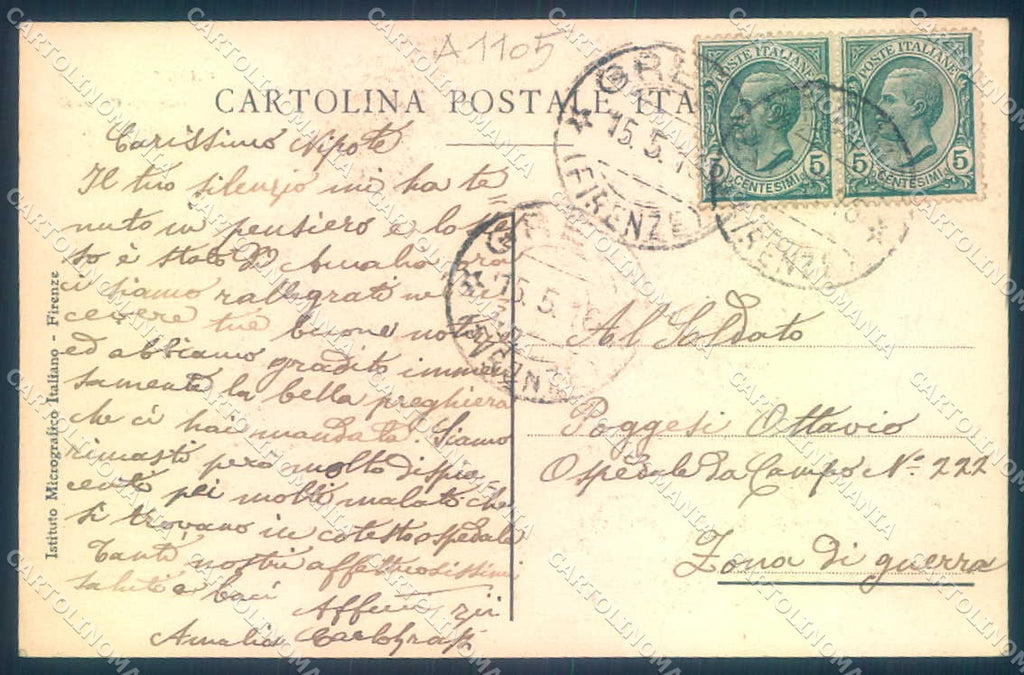 A1105
CARTOLINA POSTALE ITA
POSTE ITALIANE POSTE ITALIANE
5 5 5 5
CENTESIMI CENTESIMI
GRE
15.5.1
(FIRENZE)
15.5.16
Carissimo Nipote
Il tuo silenzio mi ha te
nuto in pensiero e lo stes
so è stato di Amalia ora
ci siamo rallegrati in ri
cevere tue buone noti
ed abbiamo gradito immen
samente la bella preghiera
che ci hai mandata. Siamo
rimasti però molto dispia
centi pei molti malati che
si trovano in cotesto ospedale
Tanti nostri affettuosissimi
saluti e baci
Affmi zii
Amalia
Al Soldato
Poggesi Ottavio
Ospedale da Campo N° 222
Zona di guerra
Istituto Micrografico Italiano - Firenze
CARTOLINOMANIA